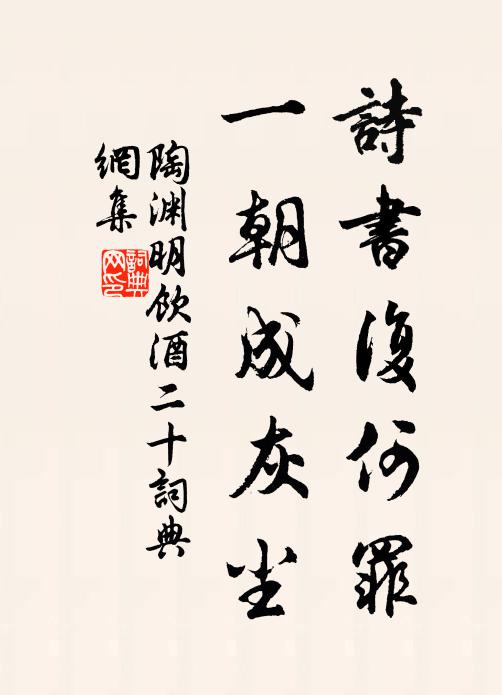 詩書復何罪
一朝成灰尘
陶渊明饮酒二十詞典
網集
詞典
网印